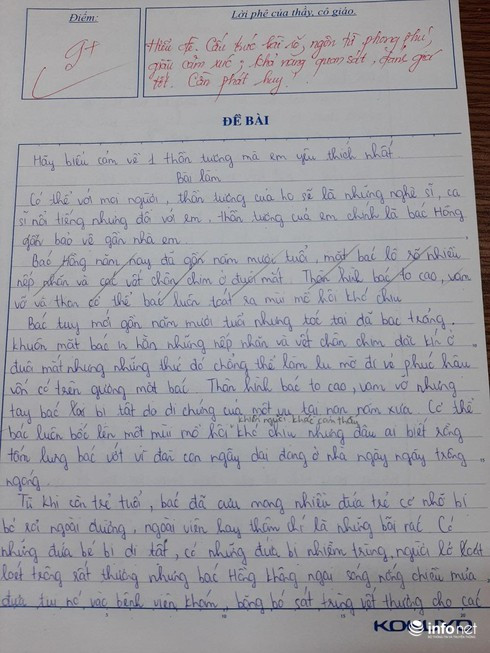 Điểm:
Lời phê của thầy, cô giáo.
9+
Hiểu đề. Cấu trúc bài rõ, ngôn từ phong phú,
giàu cảm xúc; khả năng quan sát, đánh giá
tốt. Cần phát huy!
ĐỀ BÀI
Hãy biểu cảm về 1 thần tượng mà em yêu thích nhất
Bài làm
Có thể với mọi người, thần tượng của họ sẽ là những nghệ sĩ, ca
sĩ nổi tiếng nhưng đối với em, thần tượng của em chính là bác Hồng
gần bảo vệ gần nhà em.
Bác Hồng năm nay đã gần năm mươi tuổi, mặt bác lộ rõ nhiều
nếp nhăn và các vết chân chim ở đuôi mắt. Thân hình bác to cao, vạm
vỡ và thân cơ thể bác luôn toát ra mùi mồ hôi khó chịu
Bác tuy mới gần năm mươi tuổi nhưng tóc tai đã bạc trắng,
khuôn mặt bác in hằn những nếp nhăn và vết chân chim ở
đuôi mắt nhưng những thứ đó chẳng thể làm lu mờ đi vẻ phúc hậu
vốn có trên gương mặt bác. Thân hình bác to cao, vạm vỡ nhưng
tay bác lại bị tật do di chứng của một vụ tai nạn năm xưa. Cơ thể
khiến người khác cảm thấy
bác luôn bốc lên một mùi mồ hôi khó chịu nhưng đâu ai biết rằng
tấm lưng bác vất vả vì đàn con ngây dại đang ở nhà ngày ngày trông
ngóng.
Từ khi còn trẻ tuổi, bác đã cưu mang nhiều đứa trẻ cơ nhỡ bị
bỏ rơi ngoài đường, ngoài viện hay thậm chí là những bãi rác. Có
những đứa bé bị dị tật, có những đứa bị nhiễm trùng, người lở loét
trông rất thương nhưng bác Hồng không ngại sóng, nóng chiều mưa
đưa tụi nó vào bệnh viện khám, băng bó sát trùng vết thương cho các
KOKUYO
infonet